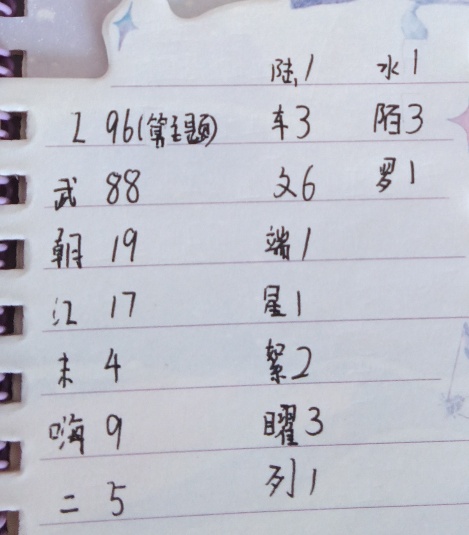 陆1 水1
乙 96(算主题) 车3 陌3
武 88 文6 罗1
朝 19 端1
江 17 星1
未 4 絮2
嗨 9 曜3
二 5 列1